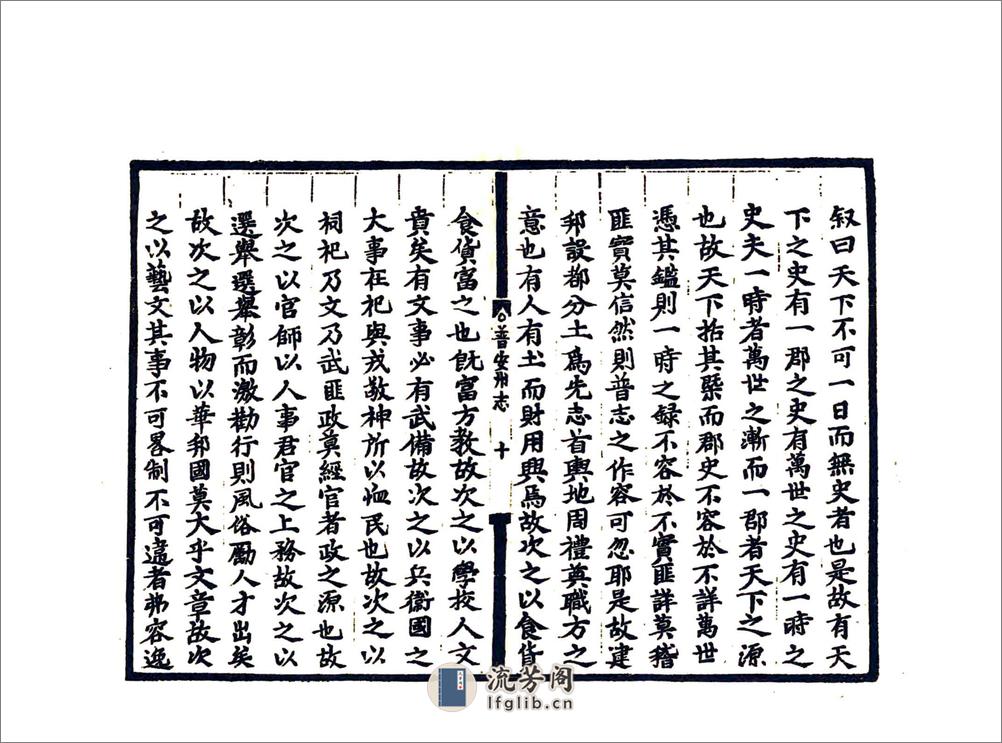 叙曰天下不可一日而無史者也是故有天
下之史有一郡之史有萬世之史有一時之
史夫一時者萬世之漸而一郡者天下之源
也故天下括其槩而郡史不容於不詳萬世
憑其鑑則一時之録不容於不實匪詳莫稽
匪實莫信然則普志之作容可忽耶是故建
邦設都分土爲先志首輿地周禮奠職方之
意也有人有土而財用興焉故次之以食貨
普安州志
十
食貨富之也既富方教故次之以學校人文
賁矣有文事必有武備故次之以兵衛國之
大事在祀與戎敬神所以恤民也故次之以
祠祀乃文乃武匪政莫經官者政之源也故
次之以官師以人事君官之上務故次之以
選舉選舉彰而激勸行則風俗勵人才出矣
故次之以人物以華邦國莫大乎文章故次
之以藝文其事不可畧制不可違者弗容逸
流芳阁
lfglib.cn